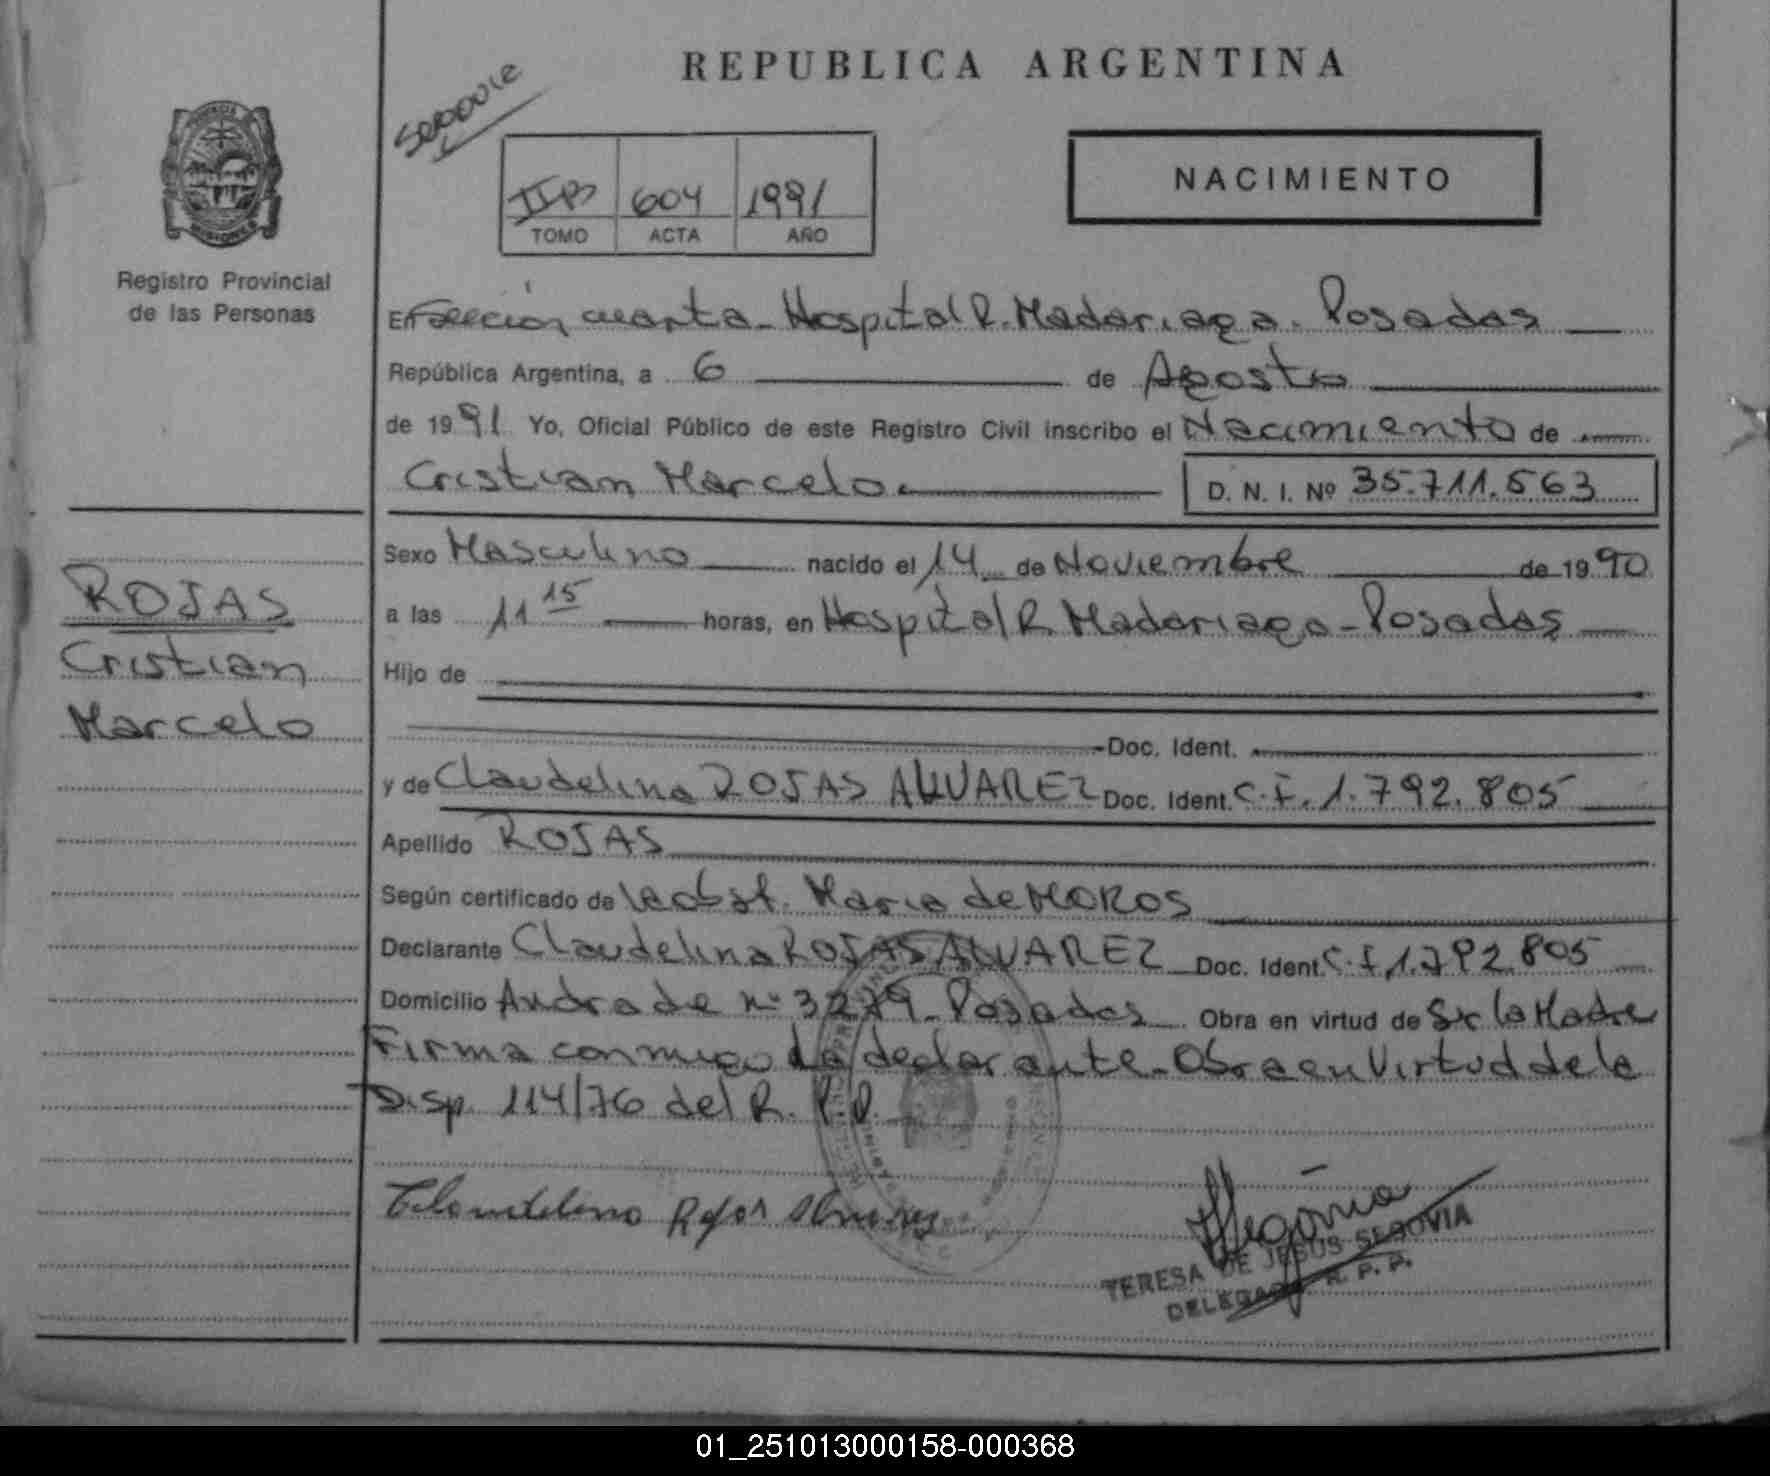 REPUBLICA ARGENTINA
NACIMIENTO
604 1991
TOMO ACTA AÑO
Registro Provincial
de las Personas
En Sección cuarta - Hospital R. Madariaga. Posadas
República Argentina, a 6 de Agosto
de 1991 Yo, Oficial Público de este Registro Civil inscribo el Nacimiento de
Cristian Marcelo
D. N. I. Nº 35.711.563
ROJAS
Cristian
Marcelo
Sexo Masculino nacido el 14 de Noviembre de 1990
a las 11 15 horas, en Hospital R. Madariaga - Posadas
Hijo de
Doc. Ident.
y de Claudelina ROJAS ALVAREZ Doc. Ident. C.I. 1.792.805
Apellido ROJAS
Según certificado de la obst. Maria de MOROS
Declarante Claudelina ROJAS ALVAREZ Doc. Ident. C.I. 1.792.805
Domicilio Andrade nº 3279 - Posadas Obra en virtud de Ser la Madre
Firma conmigo La declarante - Obra en Virtud de la
Disp. 114/76 del R. P. P.
TERESA DE JESUS SEGOVIA
DELEGADA R. P. P.
01_251013000158-000368